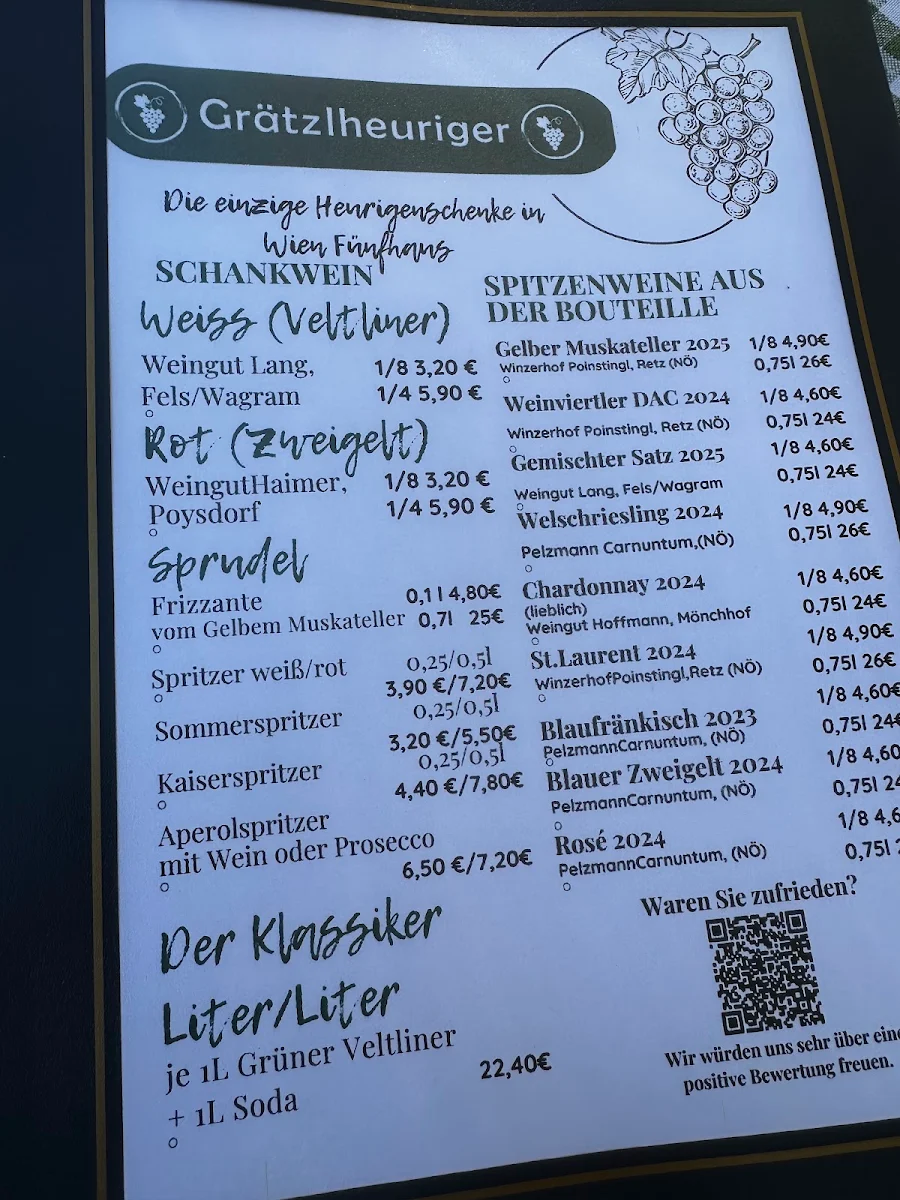 Grätzlheuriger
Die einzige Heurigenschenke in
Wien Fünfhaus
SCHANKWEIN
Weiss (Veltliner)
Weingut Lang, 1/8 3,20 €
Fels/Wagram 1/4 5,90 €
Rot (Zweigelt)
WeingutHaimer, 1/8 3,20 €
Poysdorf 1/4 5,90 €
Sprudel
Frizzante 0,1 l 4,80€
vom Gelbem Muskateller 0,7l 25€
Spritzer weiß/rot 0,25/0,5l
3,90 €/7,20€
Sommerspritzer 0,25/0,5l
3,20 €/5,50€
Kaiserspritzer 0,25/0,5l
4,40 €/7,80€
Aperolspritzer
mit Wein oder Prosecco
6,50 €/7,20€
Der Klassiker
Liter/Liter
je 1L Grüner Veltliner
22,40€
+ 1L Soda
SPITZENWEINE AUS
DER BOUTEILLE
Gelber Muskateller 2025 1/8 4,90€
Winzerhof Poinstingl, Retz (NÖ) 0,75l 26€
Weinviertler DAC 2024 1/8 4,60€
Winzerhof Poinstingl, Retz (NÖ) 0,75l 24€
Gemischter Satz 2025 1/8 4,60€
Weingut Lang, Fels/Wagram 0,75l 24€
Welschriesling 2024 1/8 4,90€
Pelzmann Carnuntum,(NÖ) 0,75l 26€
Chardonnay 2024 1/8 4,60€
(lieblich)
Weingut Hoffmann, Mönchhof 0,75l 24€
St.Laurent 2024 1/8 4,90€
WinzerhofPoinstingl,Retz (NÖ) 0,75l 26€
Blaufränkisch 2023 1/8 4,60€
PelzmannCarnuntum, (NÖ) 0,75l 24€
Blauer Zweigelt 2024 1/8 4,60
PelzmannCarnuntum, (NÖ) 0,75l 24
Rosé 2024 1/8 4,6
PelzmannCarnuntum, (NÖ) 0,75l
Waren Sie zufrieden?
Wir würden uns sehr über eine
positive Bewertung freuen.